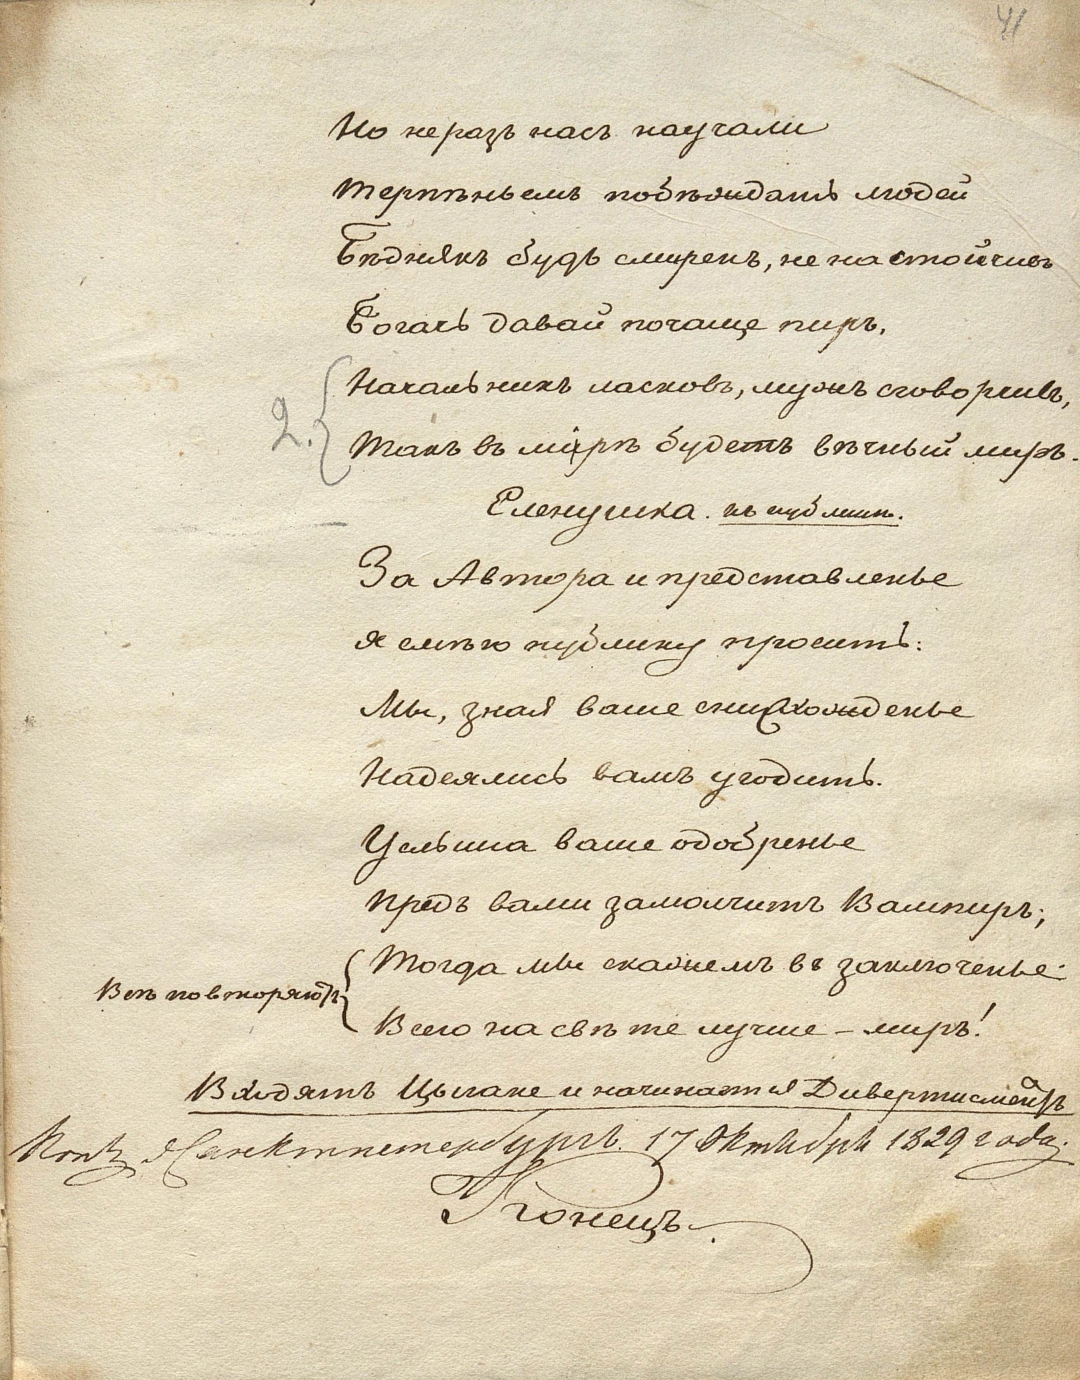 41
Но не разъ насъ научали
Терпѣньемъ побѣждать людей
Бѣднякъ будь смиренъ, не настойчивъ
Богачь давай почаще пиръ,
Начальникъ ласковъ, мужъ сговорчивъ,
2.
Такъ въ мірѣ будетъ вѣчный миръ.
Еленушка. къ публикѣ.
За Автора и представленье
я смѣю публику просить:
Мы, зная ваше снисхожденье
Надеялись вамъ угодить.
Услыша ваше одобренье
Предъ вами замолчитъ Вампиръ;
Тогда мы скажемъ въ заключенье:
Всѣ повторяютъ
Всего на свѣте лучше – миръ!
Входятъ Цыгане и начинается Дивертисментъ
Санктпетербургъ. 17 Октября 1829 года.
Конецъ.